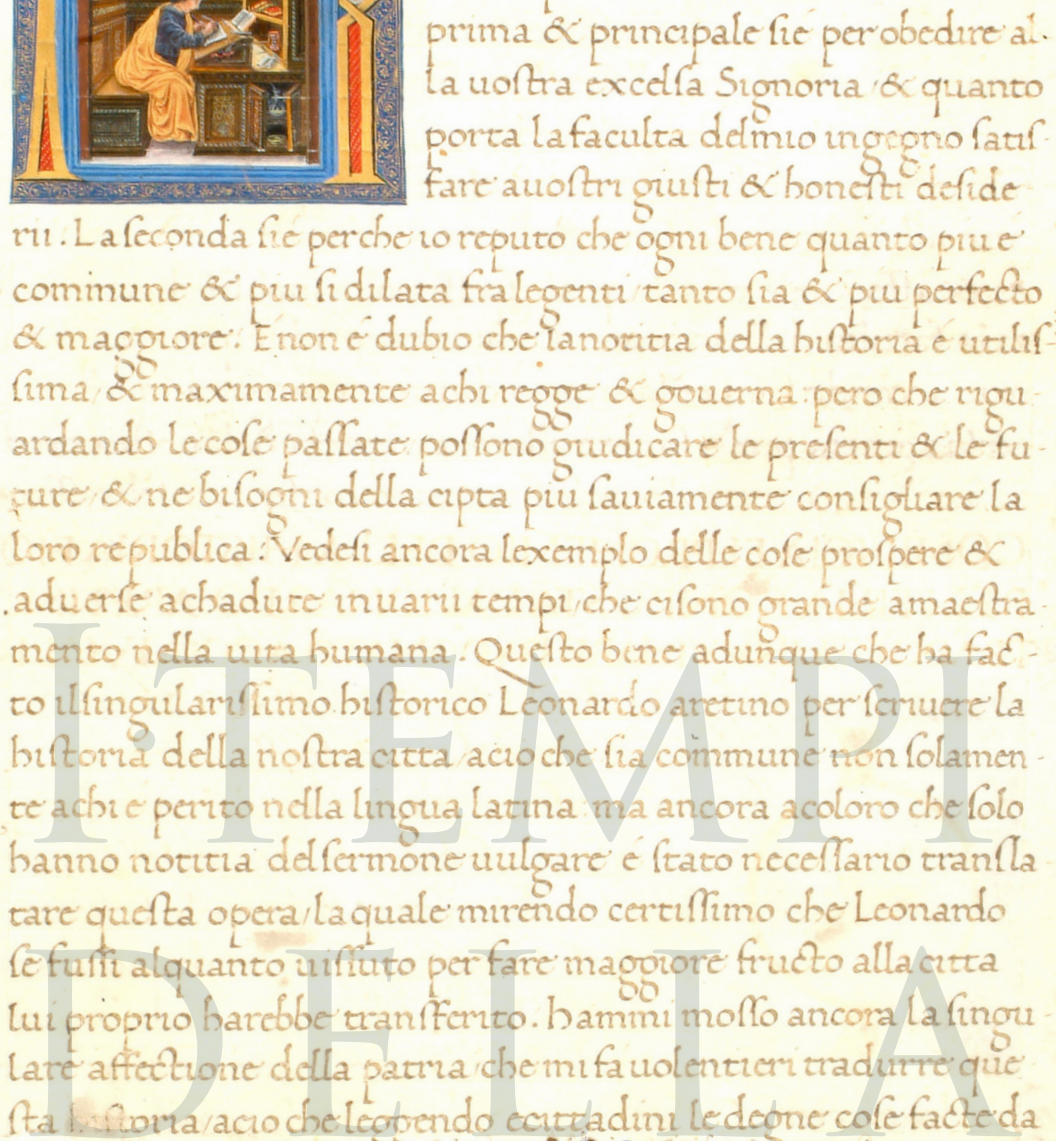 prima & principale sie per obedire al-
la uostra excelsa Signoria / & quanto
porta la faculta del mio ingegno satis-
fare a uostri giusti & honesti deside
rii. La seconda sie perche io reputo che ogni bene quanto piu e
commune & piu si dilata fra legenti / tanto sia & piu perfecto
& maggiore. E non e dubio che la notitia della historia e utilis-
sima / & maximamente achi regge & gouerna: pero che rigu-
ardando le cose passate possono giudicare le presenti & le fu-
ture / & ne bisogni della cipta piu sauiamente consigliare la
loro republica. Vedesi ancora lexemplo delle cose prospere &
aduerse achadute in uarii tempi / che ci sono grande amaestra-
mento nella uita humana. Questo bene adunque che ha fac-
to il singularissimo historico Leonardo aretino per scriuere la
historia della nostra citta / acio che sia commune non solamen-
te achi e perito nella lingua latina: ma ancora acoloro che solo
hanno notitia del sermone uulgare e stato necessario transla-
tare questa opera / la quale mi rendo certissimo che Leonardo
se fussi alquanto uissuto per fare maggiore fructo alla citta
lui proprio harebbe transferito. hammi mosso ancora la singu-
lare affectione della patria / che mi fa uolentieri tradurre que
sta historia / acio che leggendo e cittadini le degne cose facte da
I TEMPI
DELLA